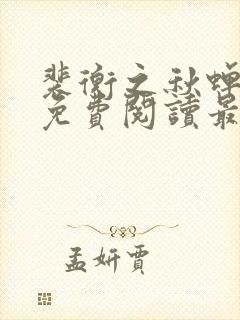 裴衡之秋蟬
免費閱讀最
孟妍賈